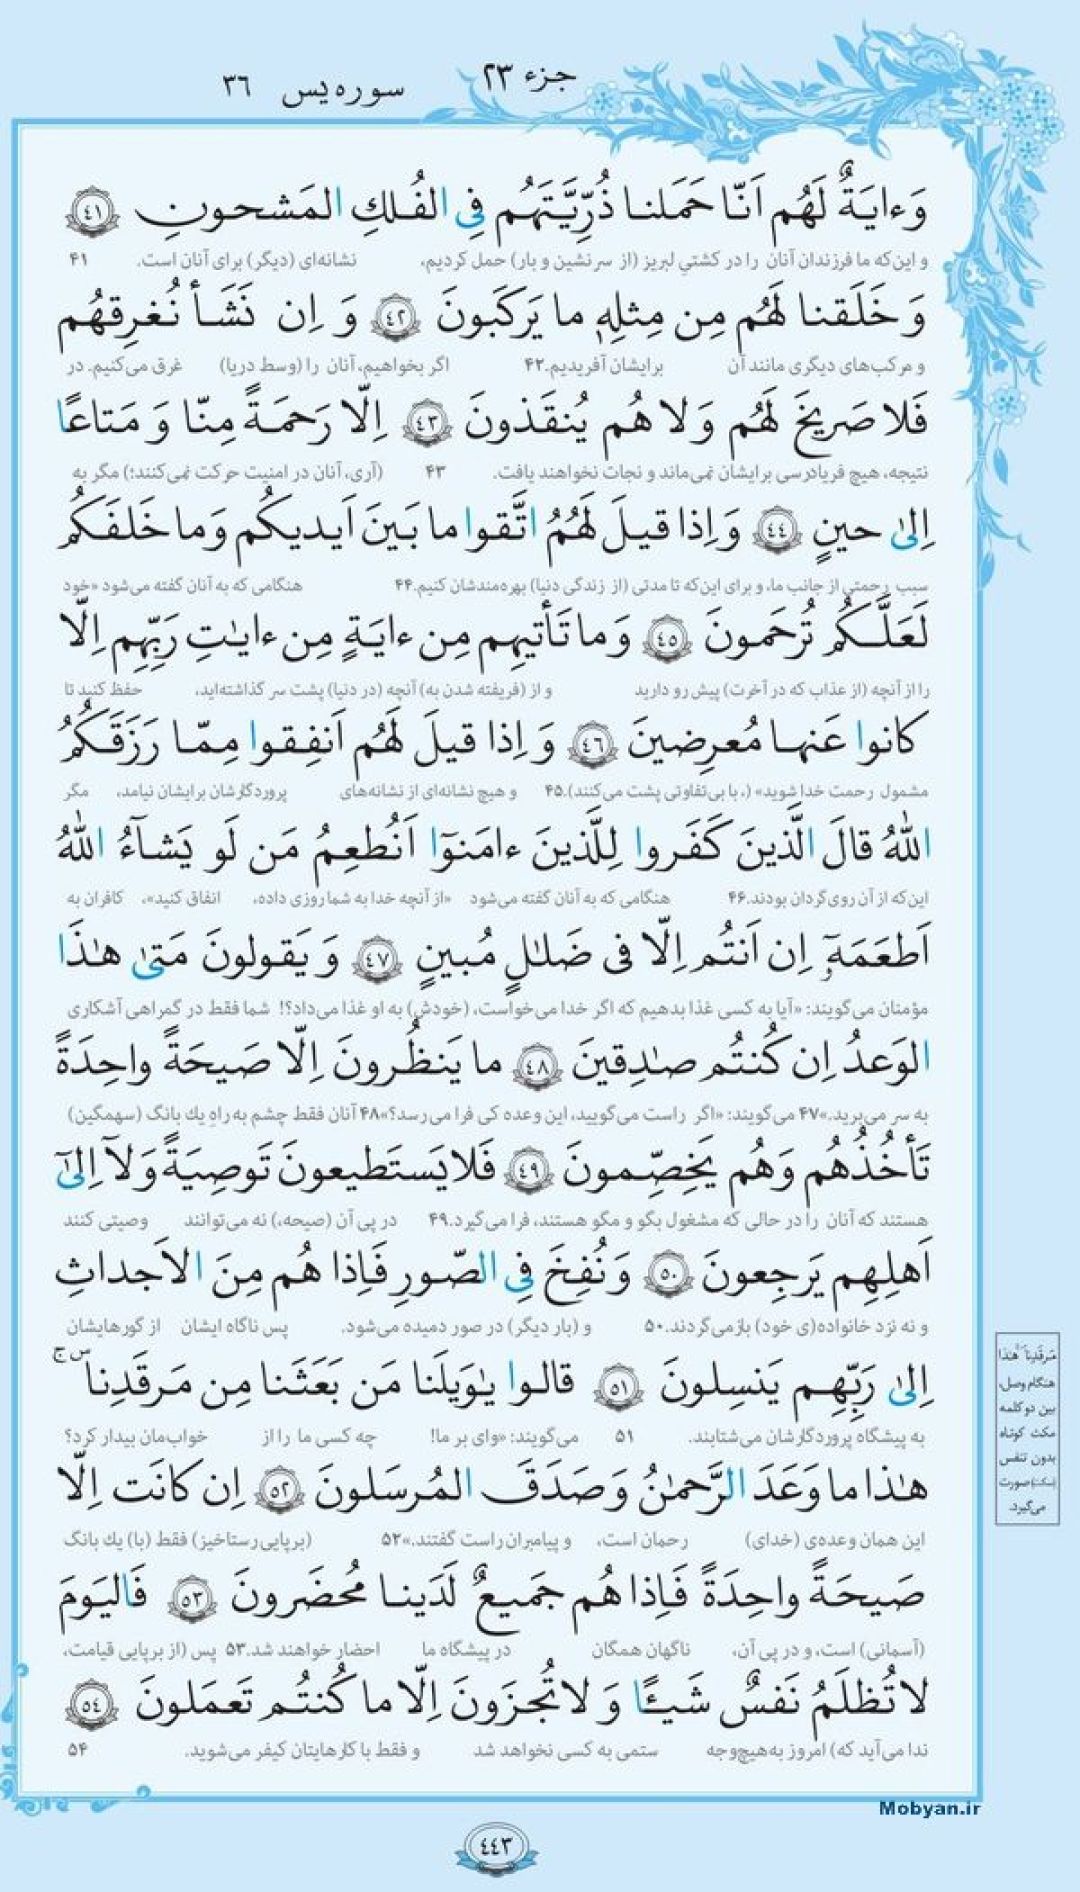 جزء ۲۳
سوره یس ۳۶
وَءایَةٌ لَهُم اَنّا حَمَلنا ذُرِّیَّتَهُم فِی الفُلكِ المَشحونِ ﴿٤١﴾
و این‌که ما فرزندان آنان را در کشتیِ لبریز (از سرنشین و بار) حمل کردیم، نشانه‌ای (دیگر) برای آنان است. ۴۱
وَ خَلَقنا لَهُم مِن مِثلِهٖ ما یَركَبونَ ﴿٤٢﴾ وَ اِن نَشَأ نُغرِقهُم
و مرکب‌های دیگری مانند آن برایشان آفریدیم.۴۲ اگر بخواهیم، آنان را (وسط دریا) غرق می‌کنیم. در
فَلا صَریخَ لَهُم وَ لا هُم یُنقَذونَ ﴿٤٣﴾ اِلّا رَحمَةً مِنّا وَ مَتاعًا
نتیجه، هیچ فریادرسی برایشان نمی‌ماند و نجات نخواهند یافت. ۴۳ (آری، آنان در امنیت حرکت نمی‌کنند؛) مگر به
اِلىٰ حینٍ ﴿٤٤﴾ وَ اِذا قیلَ لَهُمُ اتَّقوا ما بَینَ اَیدیكُم وَ ما خَلفَكُم
سبب رحمتی از جانب ما، و برای این‌که تا مدتی (از زندگی دنیا) بهره‌مندشان کنیم.۴۴ هنگامی که به آنان گفته می‌شود «خود
لَعَلَّكُم تُرحَمونَ ﴿٤٥﴾ وَ ما تَأتیهِم مِن ءایَةٍ مِن ءایٰتِ رَبِّهِم اِلّا
را از آنچه (از عذاب که در آخرت) پیش رو دارید و از (فریفته شدن به) آنچه (در دنیا) پشت سر گذاشته‌اید، حفظ کنید تا
كانوا عَنها مُعرِضینَ ﴿٤٦﴾ وَ اِذا قیلَ لَهُم اَنفِقوا مِمّا رَزَقَكُمُ
مشمول رحمت خدا شوید» (، با بی‌تفاوتی پشت می‌کنند).۴۵ و هیچ نشانه‌ای از نشانه‌های پروردگارشان برایشان نیامد، مگر
اللّٰهُ قالَ الَّذینَ كَفَروا لِلَّذینَ ءامَنوٓا اَنُطعِمُ مَن لَو یَشآءُ اللّٰهُ
این‌که از آن روی‌گردان بودند.۴۶ هنگامی که به آنان گفته می‌شود «از آنچه خدا به شما روزی داده، انفاق کنید»، کافران به
اَطعَمَهٗٓ اِن اَنتُم اِلّا فی ضَلٰلٍ مُبینٍ ﴿٤٧﴾ وَ یَقولونَ مَتىٰ هٰذَا
مؤمنان می‌گویند: «آیا به کسی غذا بدهیم که اگر خدا می‌خواست، (خودش) به او غذا می‌داد؟! شما فقط در گمراهی آشکاری
الوَعدُ اِن كُنتُم صٰدِقینَ ﴿٤٨﴾ ما یَنظُرونَ اِلّا صَیحَةً واحِدَةً
به سر می‌برید.»۴۷ می‌گویند: «اگر راست می‌گویید، این وعده کی فرا می‌رسد؟»۴۸ آنان فقط چشم به راهِ یك بانگ (سهمگین)
تَأخُذُهُم وَ هُم یَخِصِّمونَ ﴿٤٩﴾ فَلا یَستَطیعونَ تَوصِیَةً وَ لآ اِلىٰٓ
هستند که آنان را در حالی که مشغول بگو و مگو هستند، فرا می‌گیرد.۴۹ در پی آن (صیحه،) نه می‌توانند وصیتی کنند
اَهلِهِم یَرجِعونَ ﴿٥٠﴾ وَ نُفِخَ فِی الصّورِ فَاِذا هُم مِنَ الاَجداثِ
و نه نزد خانواده(ی خود) بازمی‌گردند.۵۰ و (بار دیگر) در صور دمیده می‌شود. پس ناگاه ایشان از گورهایشان
اِلىٰ رَبِّهِم یَنسِلونَ ﴿٥١﴾ قالوا یٰوَیلَنا مَن بَعَثَنا مِن مَرقَدِنا س ج
به پیشگاه پروردگارشان می‌شتابند. ۵۱ می‌گویند: «وای بر ما! چه کسی ما را از خواب‌مان بیدار کرد؟
هٰذا ما وَعَدَ الرَّحمٰنُ وَ صَدَقَ المُرسَلونَ ﴿٥٢﴾ اِن كانَت اِلّا
این همان وعده‌ی (خدای) رحمان است، و پیامبران راست گفتند.»۵۲ (برپایی رستاخیز) فقط (با) یك بانگ
صَیحَةً واحِدَةً فَاِذا هُم جَمیعٌ لَدَینا مُحضَرونَ ﴿٥٣﴾ فَالیَومَ
(آسمانی) است، و در پی آن، ناگهان همگان در پیشگاه ما احضار خواهند شد.۵۳ پس (از برپایی قیامت،
لا تُظلَمُ نَفسٌ شَیـًٔا وَ لا تُجزَونَ اِلّا ما كُنتُم تَعمَلونَ ﴿٥٤﴾
ندا می‌آید که) امروز به‌هیچ‌وجه ستمی به کسی نخواهد شد و فقط با کارهایتان کیفر می‌شوید. ۵۴
مَرقَدِنا ۜ هٰذا
هنگام وصل،
بین دو کلمه
مکث کوتاه
بدون تنفس
(سکت) صورت
می‌گیرد.
Mobyan.ir
۴۴۳